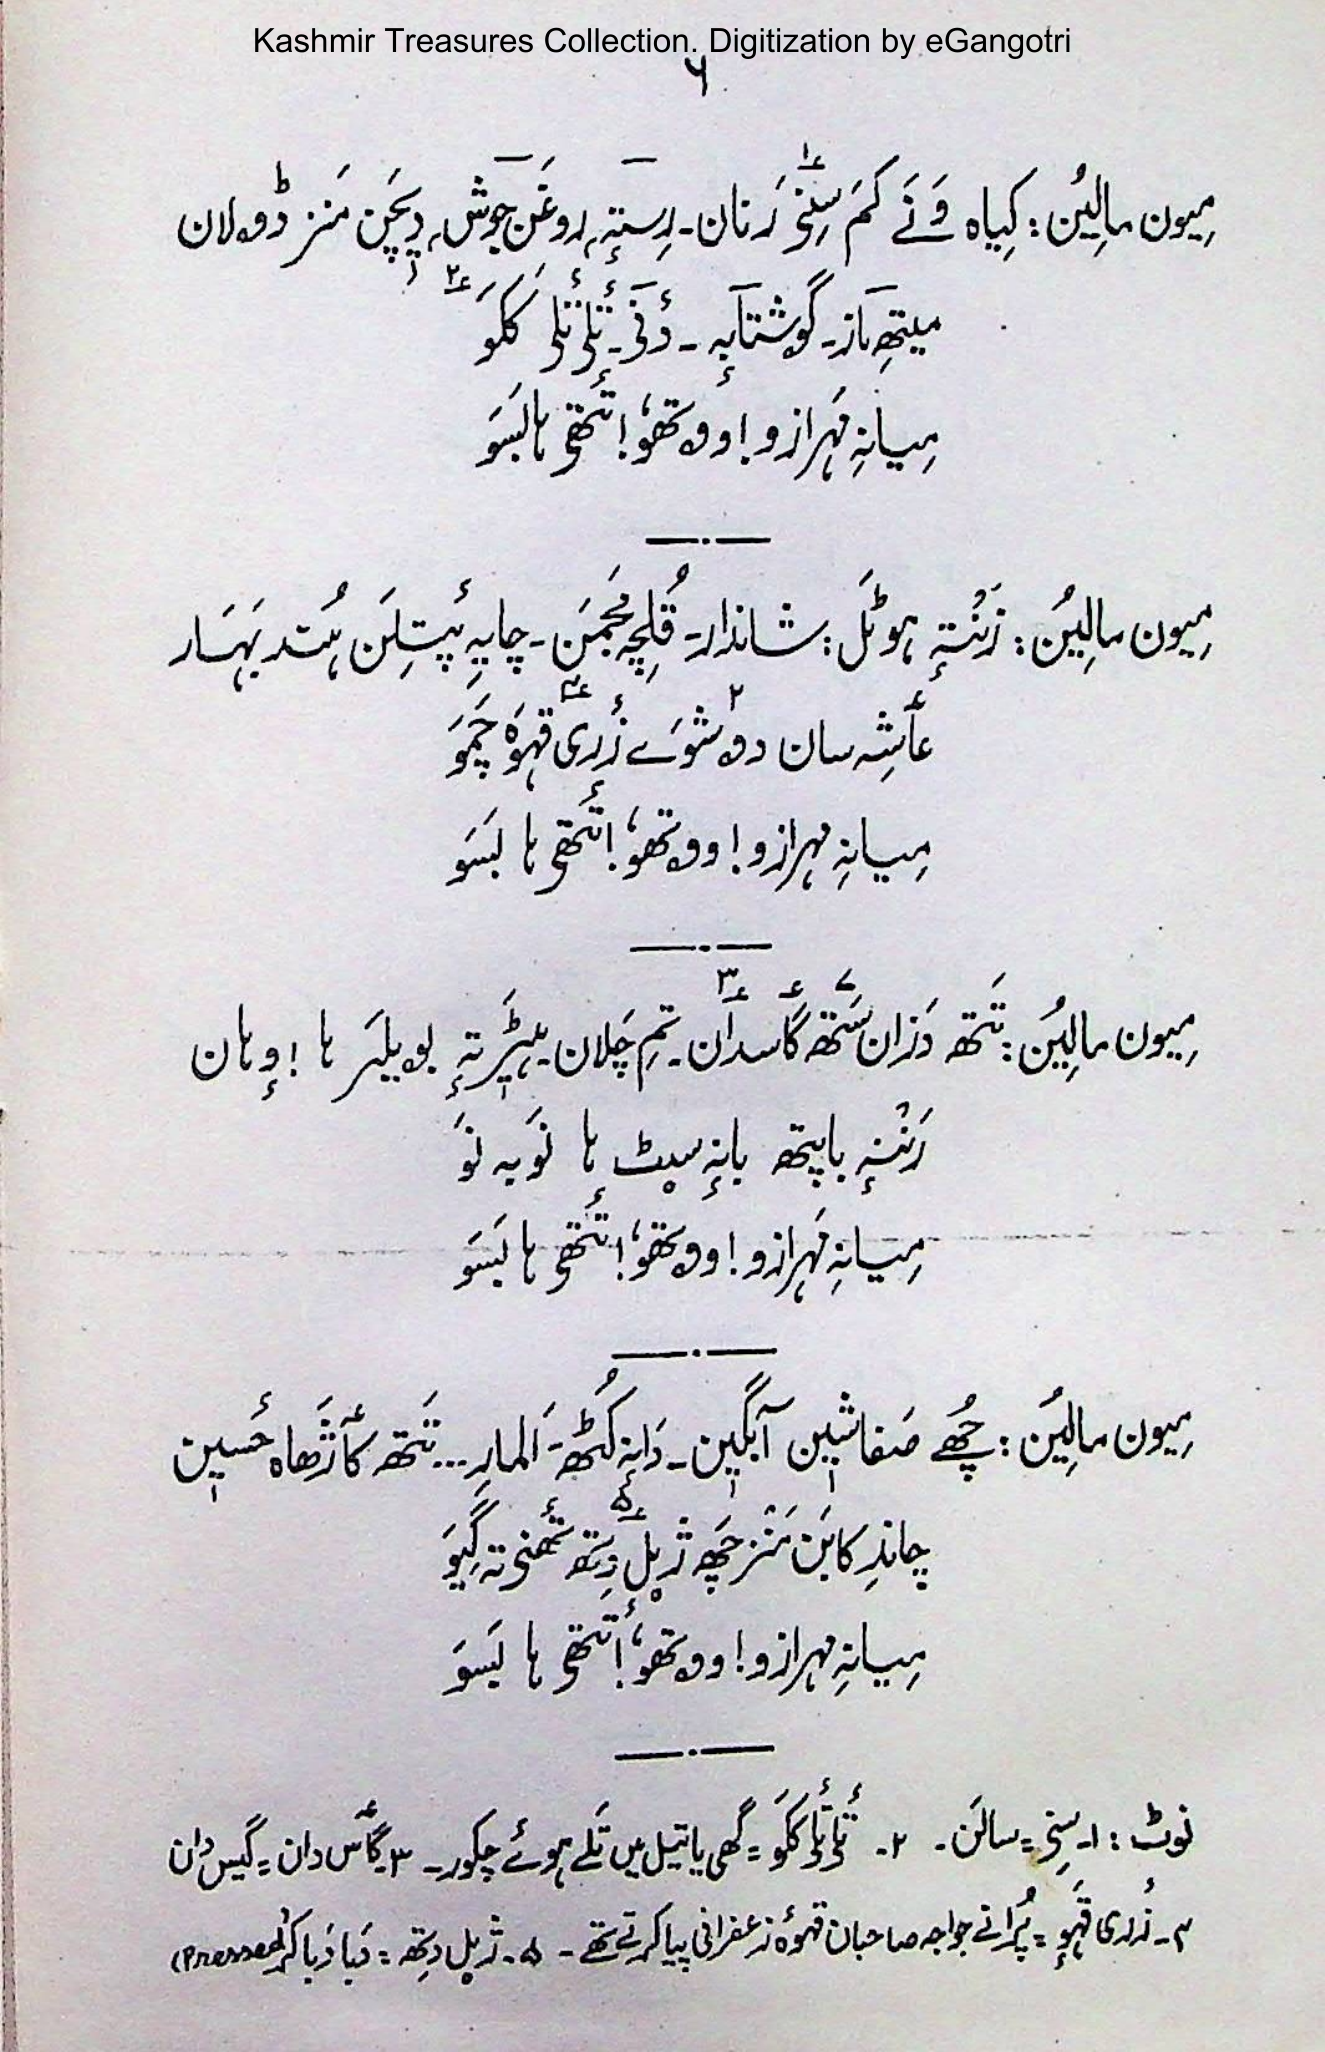 Kashmir Treasures Collection. Digitization by eGangotri
۶
مِیون مالِیُن: کِیاہ وَنَے کَم سِنۍ رَنان۔ رِستہٕ روغَن جوش دیچَن مَنز ڈولان
میتھِ ماز۔ گوشتابہٕ ۔ دٔنۍ۔ تٔلۍ تٔلۍ ککَو
مِیانہِ مَہرازو! ووتھو! أتھۍ ہا لَسَو
مِیون مالِیُن: زَنتہٕ ہوٹَل: شاندار۔ قُلچہ مُجمَن۔ چایہِ پٔیتلَن ہُند بَہار
عٲشہ سان دوشوَے زٔری قہوہ چَمَو
مِیانہِ مہرازو! ووتھو! أتھۍ ہا لَسَو
مِیون مالِیُن: تَتھ دَزان سَتھ گٲسدان۔ تِم چَلان ہیٹَر تہٕ بویلَر ہا! وہان
رَننہٕ باپتھ بانہٕ سیٹ ہا نَو بہ نَو
مِیانہِ مَہرازو! ووتھو! أتھۍ ہا لَسَو
مِیون مالِیُن: چُھے صَفا شین آبگین۔ دانہٕ کُٹھ۔ اَلمارِ... تَتھ کٲژھاہ حٔسین
چاندِ کابَن مَنز چَھ ژپل دِتھ تھٔنۍ تہ گیَو
مِیانہِ مہرازو! ووتھو! أتھۍ ہا لَسَو
نوٹ: ۱۔ سِنۍ = سالَن۔ ۲۔ تٔلۍ تٔلۍ ککَو = گھی یا تیل میں تَلے ہوئے چکور۔ ۳۔ گٲس دان = گیس دان
۴۔ زٔری قَہوٕ = پُرانے خواجہ صاحبان قہوۂ زعفرانی پیا کرتے تھے ۔ ۵۔ ژپل دِتھ = دَبا دَبا کر (Pressed)